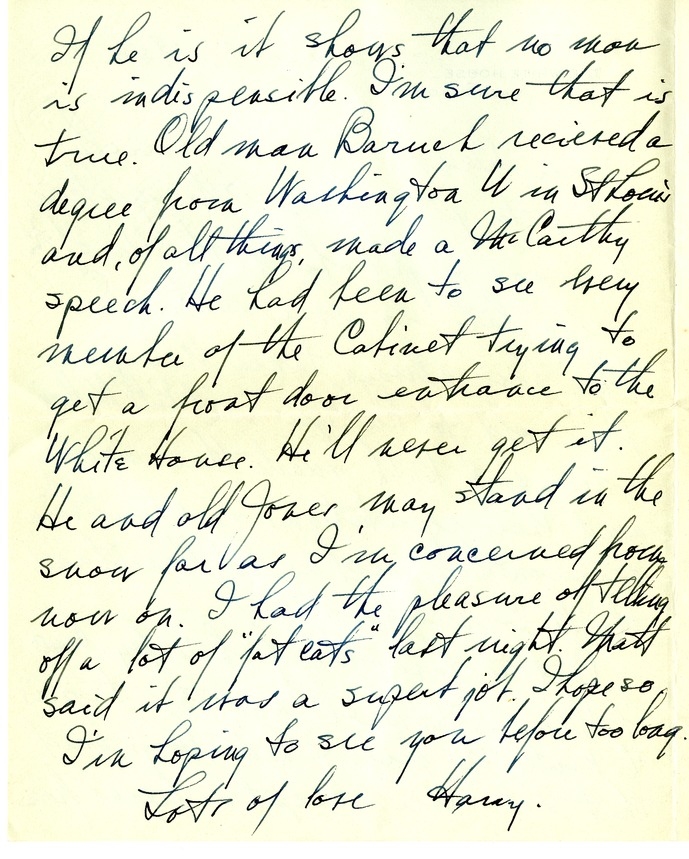 If he is it shows that no man
is indispensible. I'm sure that is
true. Old man Baruch recieved a
degree from Washington U in St Louis
and, of all things, made a McCarthy
speech. He had been to see every
member of the Cabinet trying to
get a front door entrance to the
White House. He'll never get it.
He and old Jones may stand in the
snow far as I'm concerned from
now on. I had the pleasure of telling
off a lot of "fat cats" last night. Matt
said it was a superb job. I hope so.
I'm hoping to see you before too long.
Lots of love Harry.